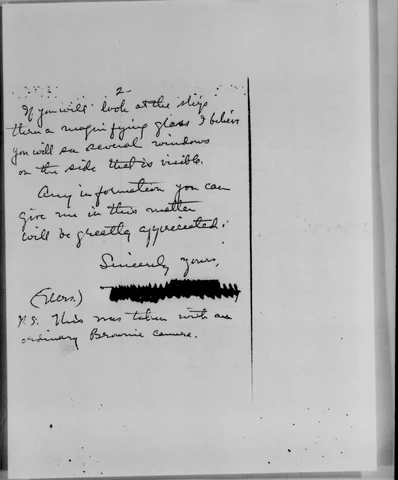 2-
If you will look at the ship
thru a magnifying glass I believe
you will see several windows
on the side that is visible.
Any information you can
give me in this matter
will be greatly appreciated.
Sincerely yours,
(Mrs.)
P.S. This was taken with an
ordinary Brownie camera.